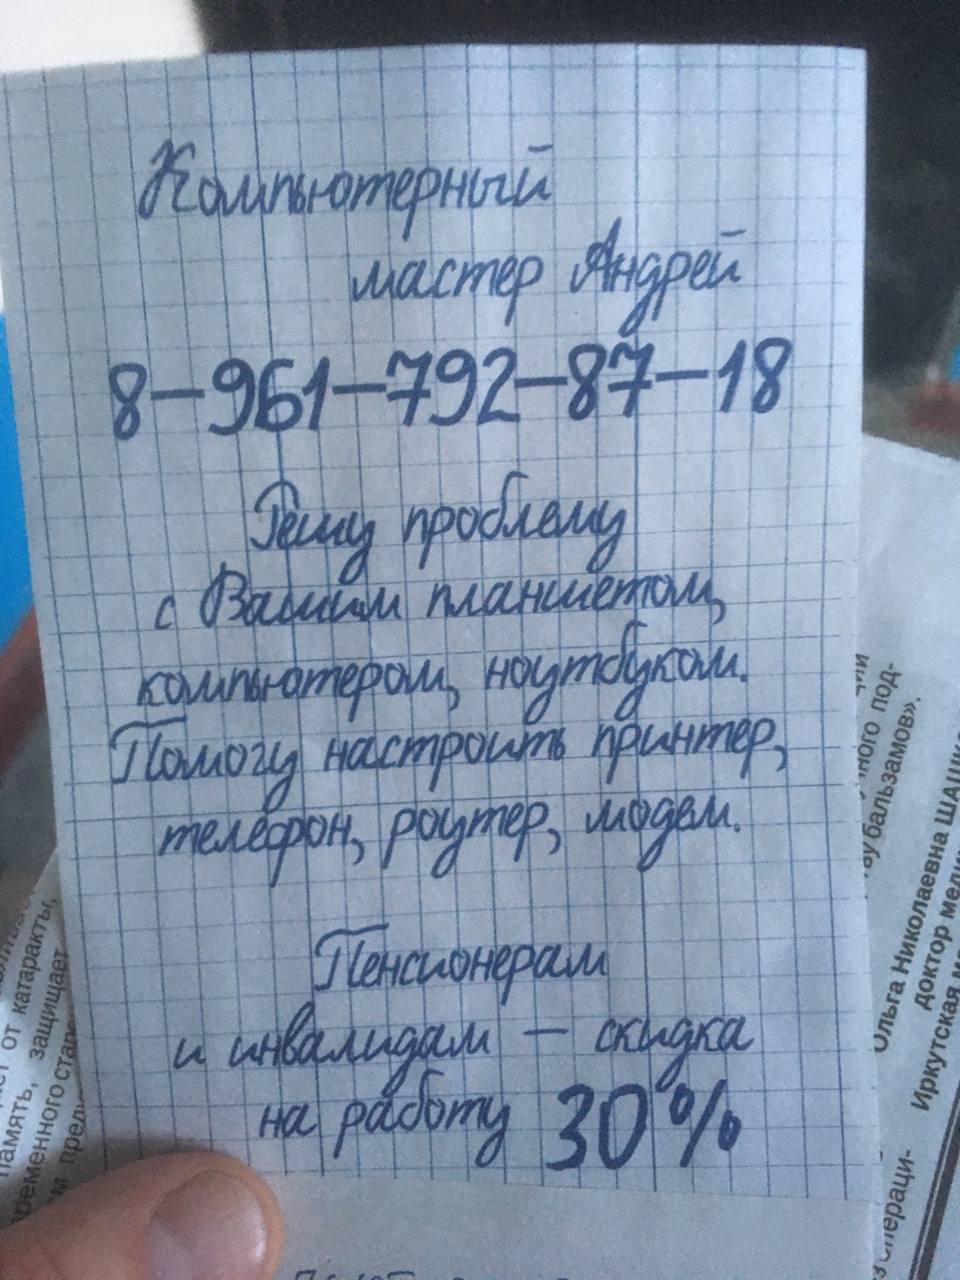 Компьютерный
мастер Андрей
8-961-792-87-18
Решу проблему
с Вашим планшетом,
компьютером, ноутбуком.
Помогу настроить принтер,
телефон, роутер, модем.
Пенсионерам
и инвалидам — скидка
на работу 30%
от катаракты,
память, защищает
ного под-
бальзамов».
Ольга Николаевна
доктор
Иркутская